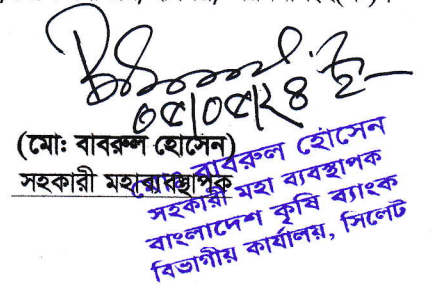 ০৫/০৫/২৪
(মোঃ বাবরুল হোসেন)
সহকারী মহাব্যবস্থাপক
বাবরুল হোসেন
সহকারী মহা ব্যবস্থাপক
বাংলাদেশ কৃষি ব্যাংক
বিভাগীয় কার্যালয়, সিলেট